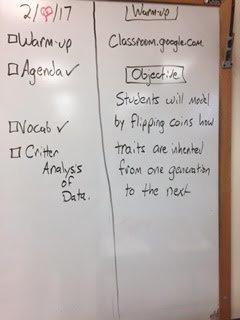 2/14/17
Warm-up
Agenda ✓
Vocab ✓
Critter
Analysis
of
Data.
Warm-up
Classroom.google.com
Objective
Students will model
by flipping coins how
traits are inherited
from one generation
to the next